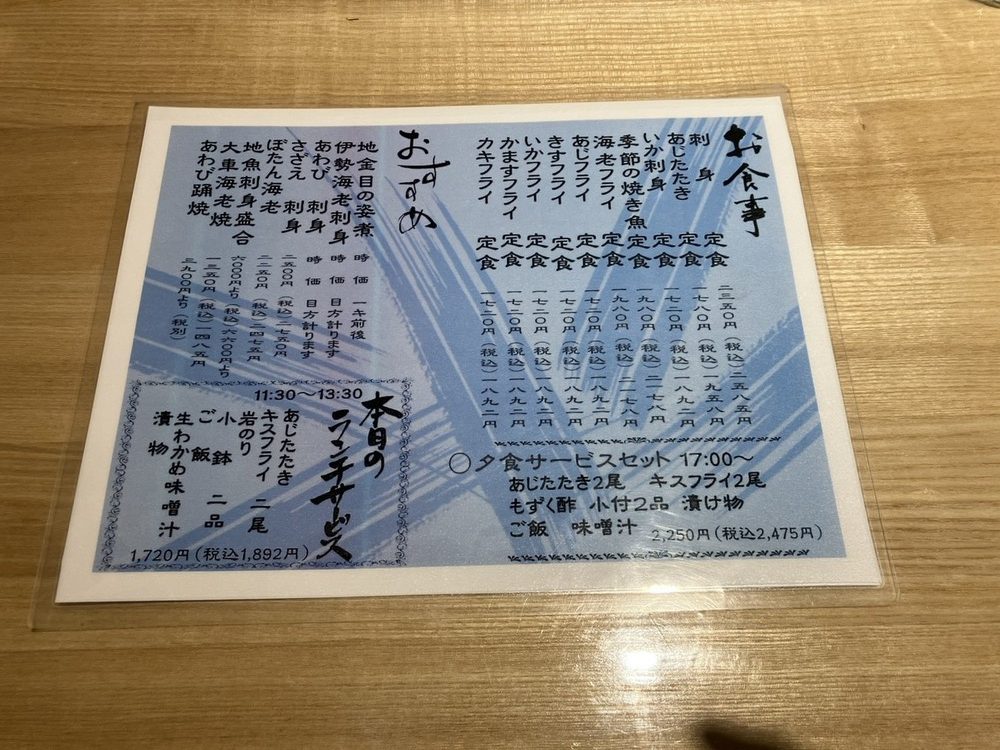 お食事
刺身 定食 二三五〇円(税込)二五八五円
あじたたき 定食 一七八〇円(税込)一九五八円
いか刺身 定食 一七二〇円(税込)一八九二円
季節の焼き魚 定食 一九八〇円(税込)二一七八円
海老フライ 定食 一九八〇円(税込)二一七八円
あじフライ 定食 一七二〇円(税込)一八九二円
きすフライ 定食 一七二〇円(税込)一八九二円
いかフライ 定食 一七二〇円(税込)一八九二円
かますフライ 定食 一七二〇円(税込)一八九二円
カキフライ 定食 一七二〇円(税込)一八九二円
○夕食サービスセット 17:00～
あじたたき2尾 キスフライ2尾
もずく酢 小付2品 漬け物
ご飯 味噌汁 2,250円(税込2,475円)
おすすめ
地金目の姿煮 時価 一キ前後
伊勢海老刺身 時価 目方計ります
あわび 刺身 時価 目方計ります
さざえ 刺身 二五〇〇円(税込)二七五〇円
ぼたん海老 二二五〇円(税込)二四七五円
地魚刺身盛合 六〇〇〇円より(税込)六六〇〇円より
大車海老焼 一三五〇円(税込)一四八五円
あわび踊焼 三九〇〇円より(税別)
11:30～13:30
本日の
ランチサービス
あじたたき
キスフライ 二尾
岩のり
小鉢 二品
ご飯
生わかめ味噌汁
漬物
1,720円(税込1,892円)